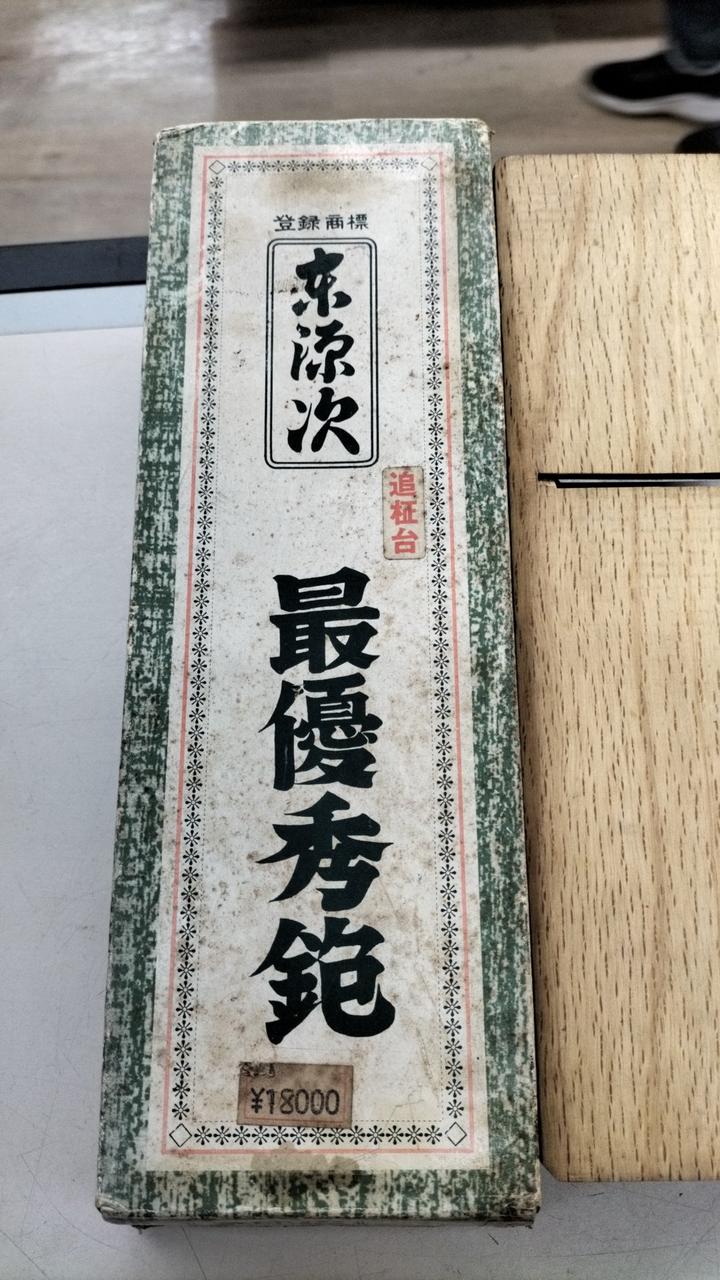 登録商標
东源次
追柾台
最優秀鉋
¥18000